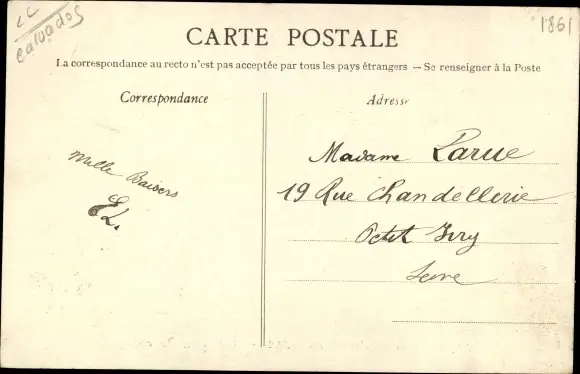 LL
Calvados
1861
CARTE POSTALE
La correspondance au recto n'est pas acceptée par tous les pays étrangers — Se renseigner à la Poste
Correspondance
Adresse
Mille Baisers
EL.
Madame Larue
19 Rue Chandellerie
Petit Ivry
Seine